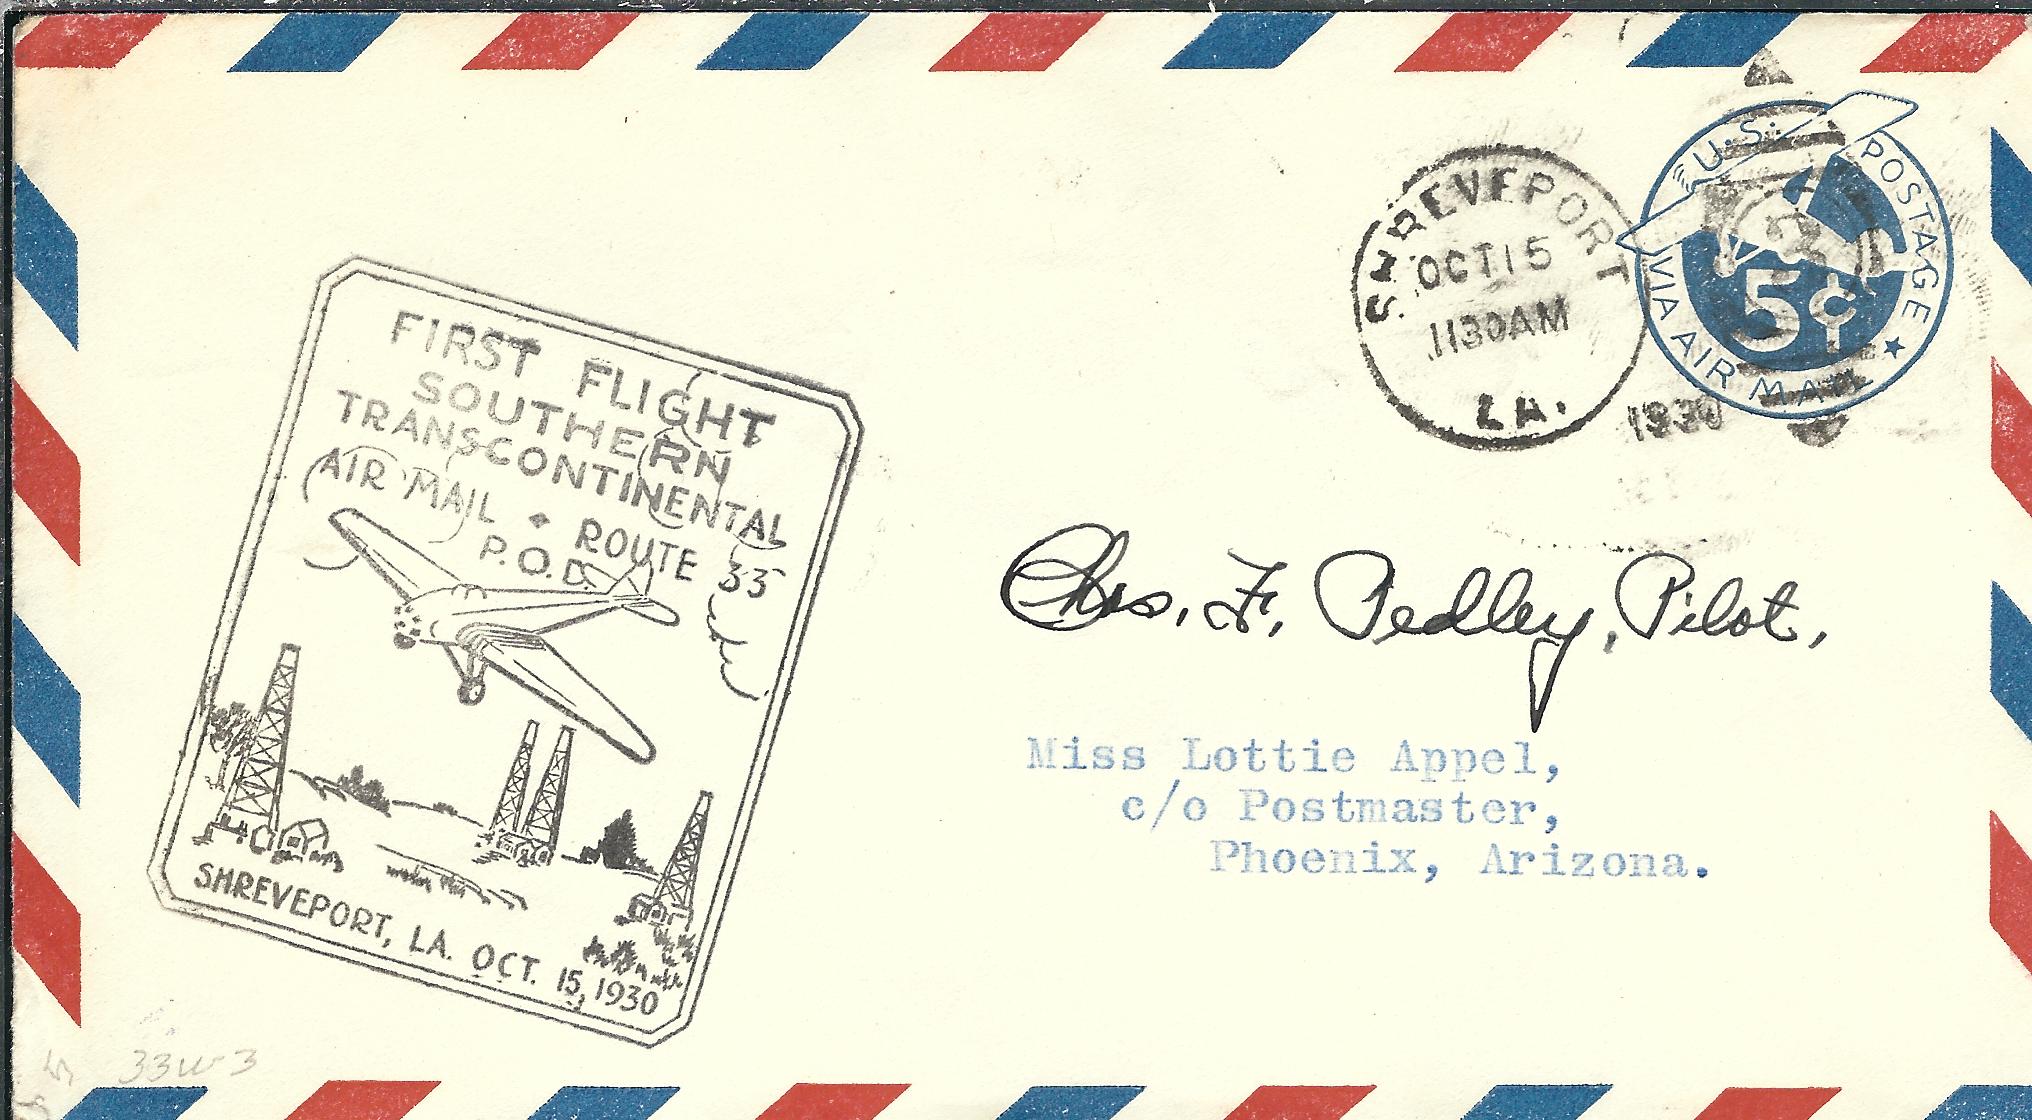 U.S. POSTAGE
VIA AIR MAIL
5¢
SHREVEPORT
OCT 15
1130 AM
LA.
1930
FIRST FLIGHT
SOUTHERN
TRANSCONTINENTAL
AIR MAIL ROUTE 33
P.O.D.
SHREVEPORT, LA. OCT. 15, 1930
Chas. F. Pedley, Pilot.
Miss Lottie Appel,
c/o Postmaster,
Phoenix, Arizona.
33W-3